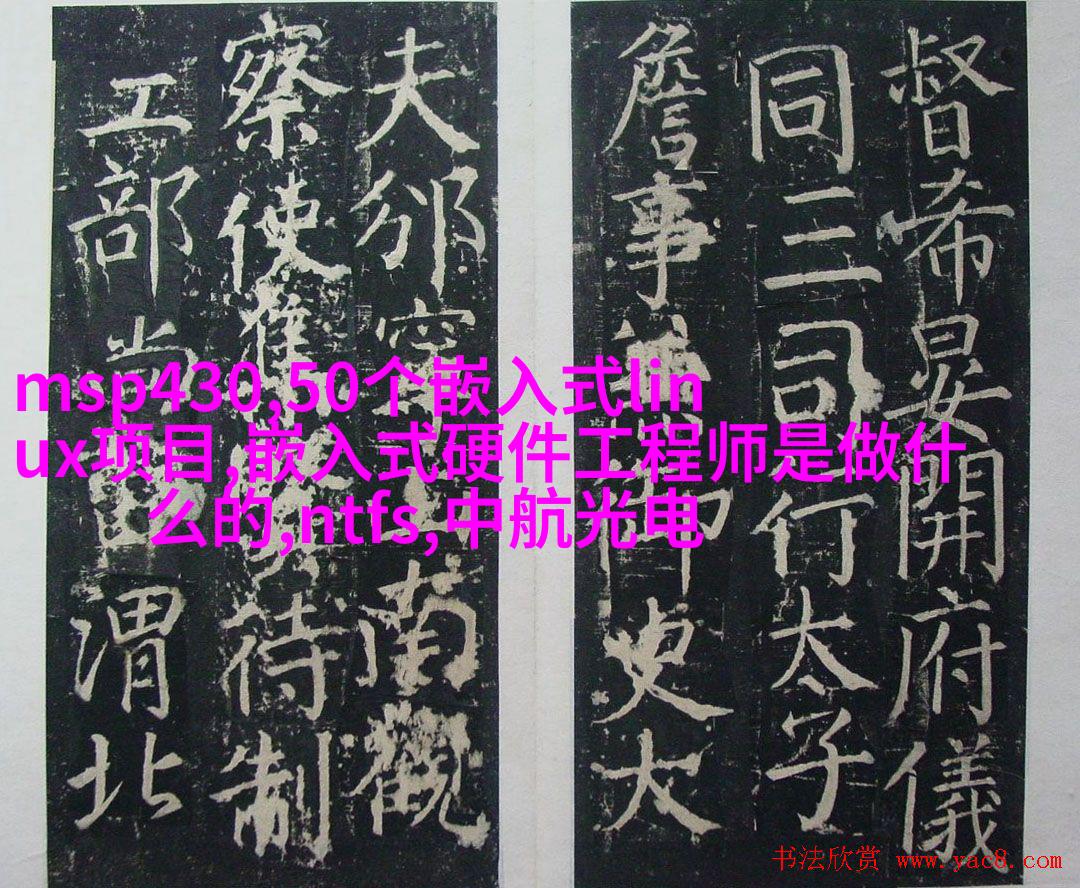 督希晏開府儀
同三司行太子
詹事兼御史大
夫邠寧南觀
察使待制
工部尚書渭北
msp430,50个嵌入式lin
ux项目,嵌入式硬件工程师是做什
么的,ntfs,中航光电
书法欣赏 www.yac8.com